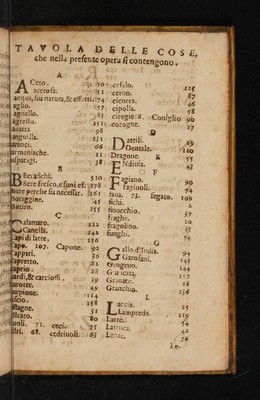 TAVOLA DELLE COSE,
che nella presente opera si contengono.
A
Aceto. 30
acetosa. 31
acqua, sua natura, & effetti. 74
aglio. 57
agnello. 83
agresta. 151
anatra 98
anguilla. 131
aranci. 66
armeniache. 11
asparagi. 18
B
Beccafichi. 510
Bere fresco, e suoi ef. 178
bere perche sia necessar. 161
boraggine. 45
butiro. 155
C
Calamaro. 122
Canelli. 142
capi di latte. 156
Capo. 107. Capone. 92
cappari. 36
capretto. 82
caprio. 88
cardi, & carcioffi. 39
carotte. 49
carpione. 114
cascio. 158
castagne. 31
castrato. 80
cauoli. 71. ceci. 75
cedri. 68. cedriuoli. 63
cefalo. 125
ceruo. 87
cicorea. 46
cipolla. 58
ciregie 8. Coniglio 90
cotogne. 27
D
Dattili. 29
Dentale. 110
Dragone. 55
E
Endiuia. 43
F
Fagiano. 99
Fagiuoli. 74
faua. 73. fegato. 109
fichi. 2
finocchio. 37
fraghe. 10
fragolino. 35
funghi. 54
G
Gallo d'India. 94
Garofani. 143
Gengeuo. 144
Guazara. 177
Granate. 18
Granchio. 136
L
Laccia. 25
Lampreda. 119
Latte. 54
Lattuca. 42
Lente. 76
Le-